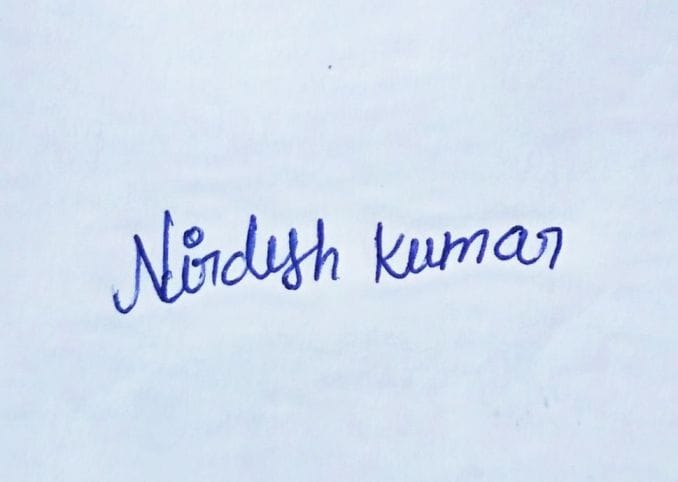 Nirdesh Kumar